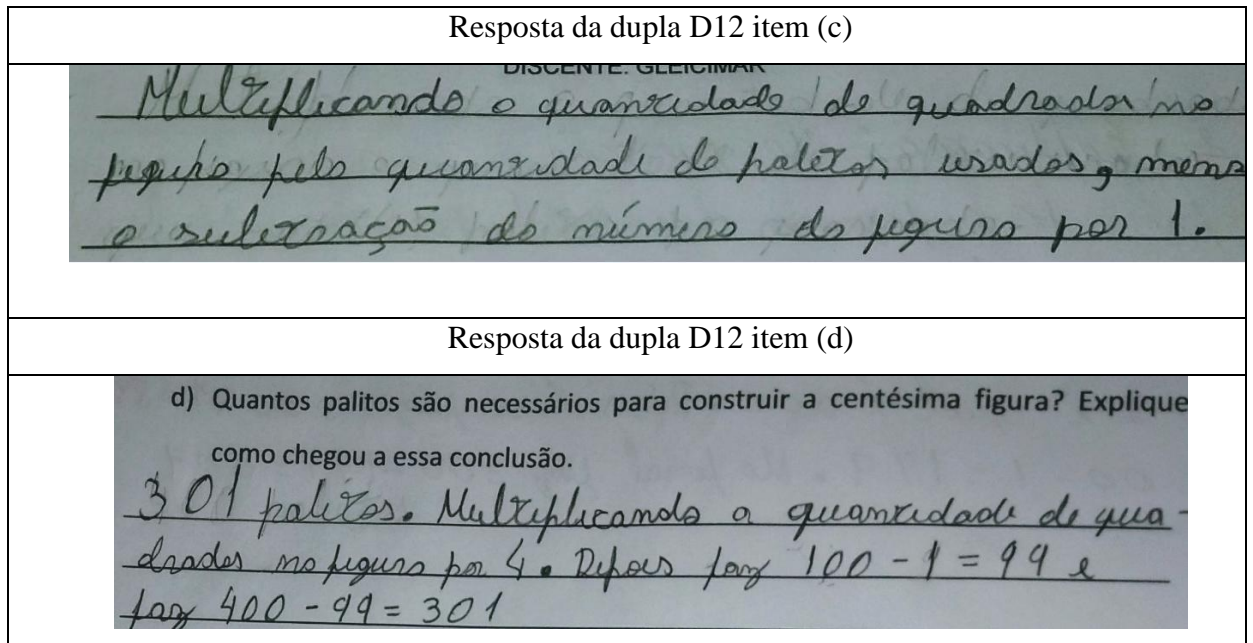 Resposta da dupla D12 item (c)
DISCENTE: GLEICIMAR
Multiplicando a quantidade de quadrados na
figura pela quantidade de palitos usados, menos
a subtração do número da figura por 1.
Resposta da dupla D12 item (d)
d) Quantos palitos são necessários para construir a centésima figura? Explique
como chegou a essa conclusão.
301 palitos. Multiplicando a quantidade de qua-
drados na figura por 4. Depois faz 100 - 1 = 99 e
faz 400 - 99 = 301